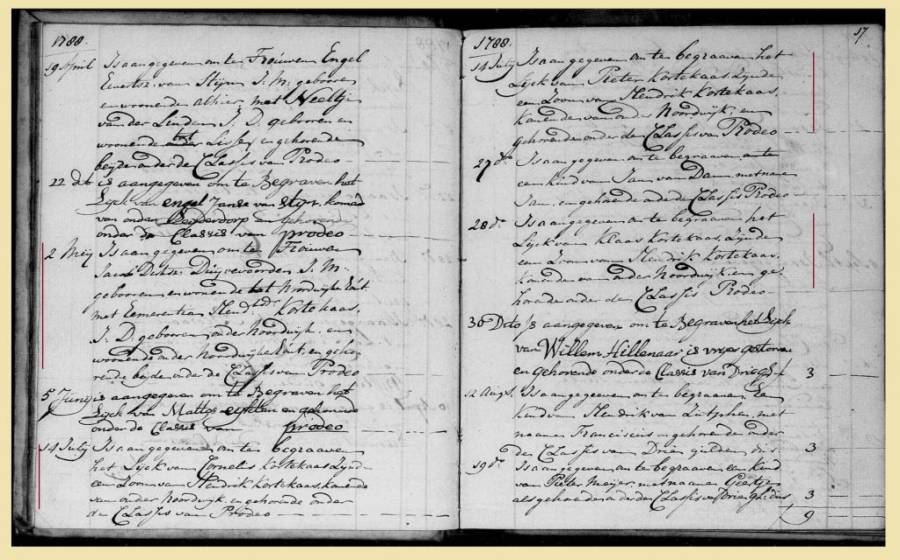 1788.
19 April Is aangegeven om te Trouwen Engel
Evertsz. van Stijn J. M. geboren
en woonende alhier, met Neeltje
van der Linden J. D. geboren en
woonende tot Lisse, en gehoorende
beyde onder de Classis van Prodeo
22 dito is aangegeven om te Begraven het
Lyck van Engel Janse van Stijn, komende
van onder en behorende
onder de Classis van prodeo
2 Meij Is aangegeven om te Trouwen
Duijvevoorden J. M.
geboren en woonende tot Noordwijk Uit
met Emerentia Hendr. Kortekaas,
J. D. geboren onder Noordwijk, en
woonende onder Noordwijkerhout, en geho-
rende beyde onder de Classis van Prodeo
5 Junij is aangegeven om te Begraven het
Lyck van en gehorende
onder de Classis van prodeo
14 July Is aangegeven om te begraaven
het Lyck van Cornelis Kortekaas, Zijnde
een Zoon van Hendrik Kortekaas, komende
van onder Noordwijk, en gehorende onder
de Classis van Prodeo
1788.
17.
14 July Is aangegeven om te begraaven het
Lyck van Pieter Kortekaas, Zijnde
een Zoon van Hendrik Kortekaas,
komende van onder Noordwijk, en
gehorende onder de Classis van Prodeo
27 do. Is aangegeven om te begraaven
een kind van Jan van Dam, met name
Jan, en gehorende onder de Classis Prodeo
28 do. Is aangegeven om te begraaven het
Lyck van Klaas Kortekaas, Zijnde
een Zoon van Hendrik Kortekaas,
komende van onder Noordwijk, en ge-
horende onder de Classis Prodeo
30 Dito Is aangegeven om te Begraven het Lyck
van Willem Hillenaar
en gehorende onder de Classis van Drie Gd. f 3
12 Augs. Is aangegeven om te begraaven Een
kind van Hendrik van Zutphen, met
naame Franciscus en gehorende onder
de Classis van Drie gulden, dus 3
19 do. Is aangegeven om te begraaven Een kind
van Pieter Meijer, met naame Geertje
als gehorende onder de Classis van Drie Gl. dus 3
9